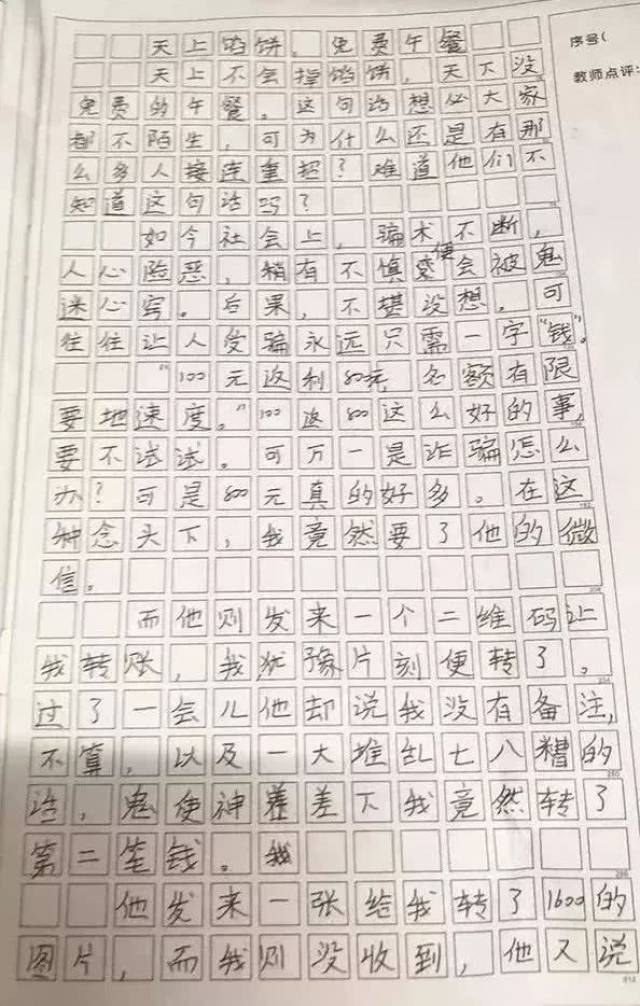 天上馅饼,免费午餐
序号(
天上不会掉馅饼,天下没
教师点评:
免费的午餐。这句话想必大家
都不陌生,可为什么还是有那
么多人接连重招?难道他们不
知道这句话吗?
如今社会上,骗术不断,
人心险恶,稍有不慎便会被鬼
迷心窍。后果,不堪设想。可
往往让人受骗永远只需一字"钱"。
"100元返利800元,名额有限
要地速度。"100返800这么好的事,
要不试试。可万一是诈骗怎么
办?可是800元真的好多。在这
种念头下,我竟然要了他的微
信。
而他则发来一个二维码让
我转账,我犹豫片刻便转了。
过了一会儿他却说我没有备注,
不算,以及一大堆乱七八糟的
话,鬼使神差差下我竟然转了
第二笔钱。
他发来一张给我转了1600的
图片,而我则没收到,他又说